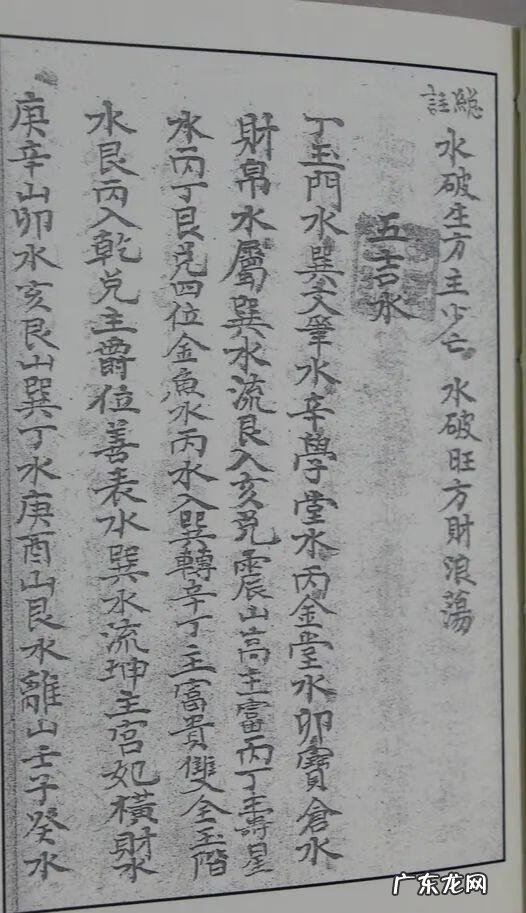 總註
水破生方主少亡 水破旺方財浪蕩
五吉水
丁玉門水巽文筆水辛學堂水丙金堂水卯寶倉水
財帛水屬巽水流艮入亥兑震山高主富丙丁壽星
水丙丁艮兑四位金魚水丙水入巽轉辛丁主富貴雙全玉階
水艮丙入乾兑主爵位善表水巽水流坤主宮妃橫財水
庚辛山卯水亥艮山巽丁水庚酉山艮水離山壬子癸水
广东龙网